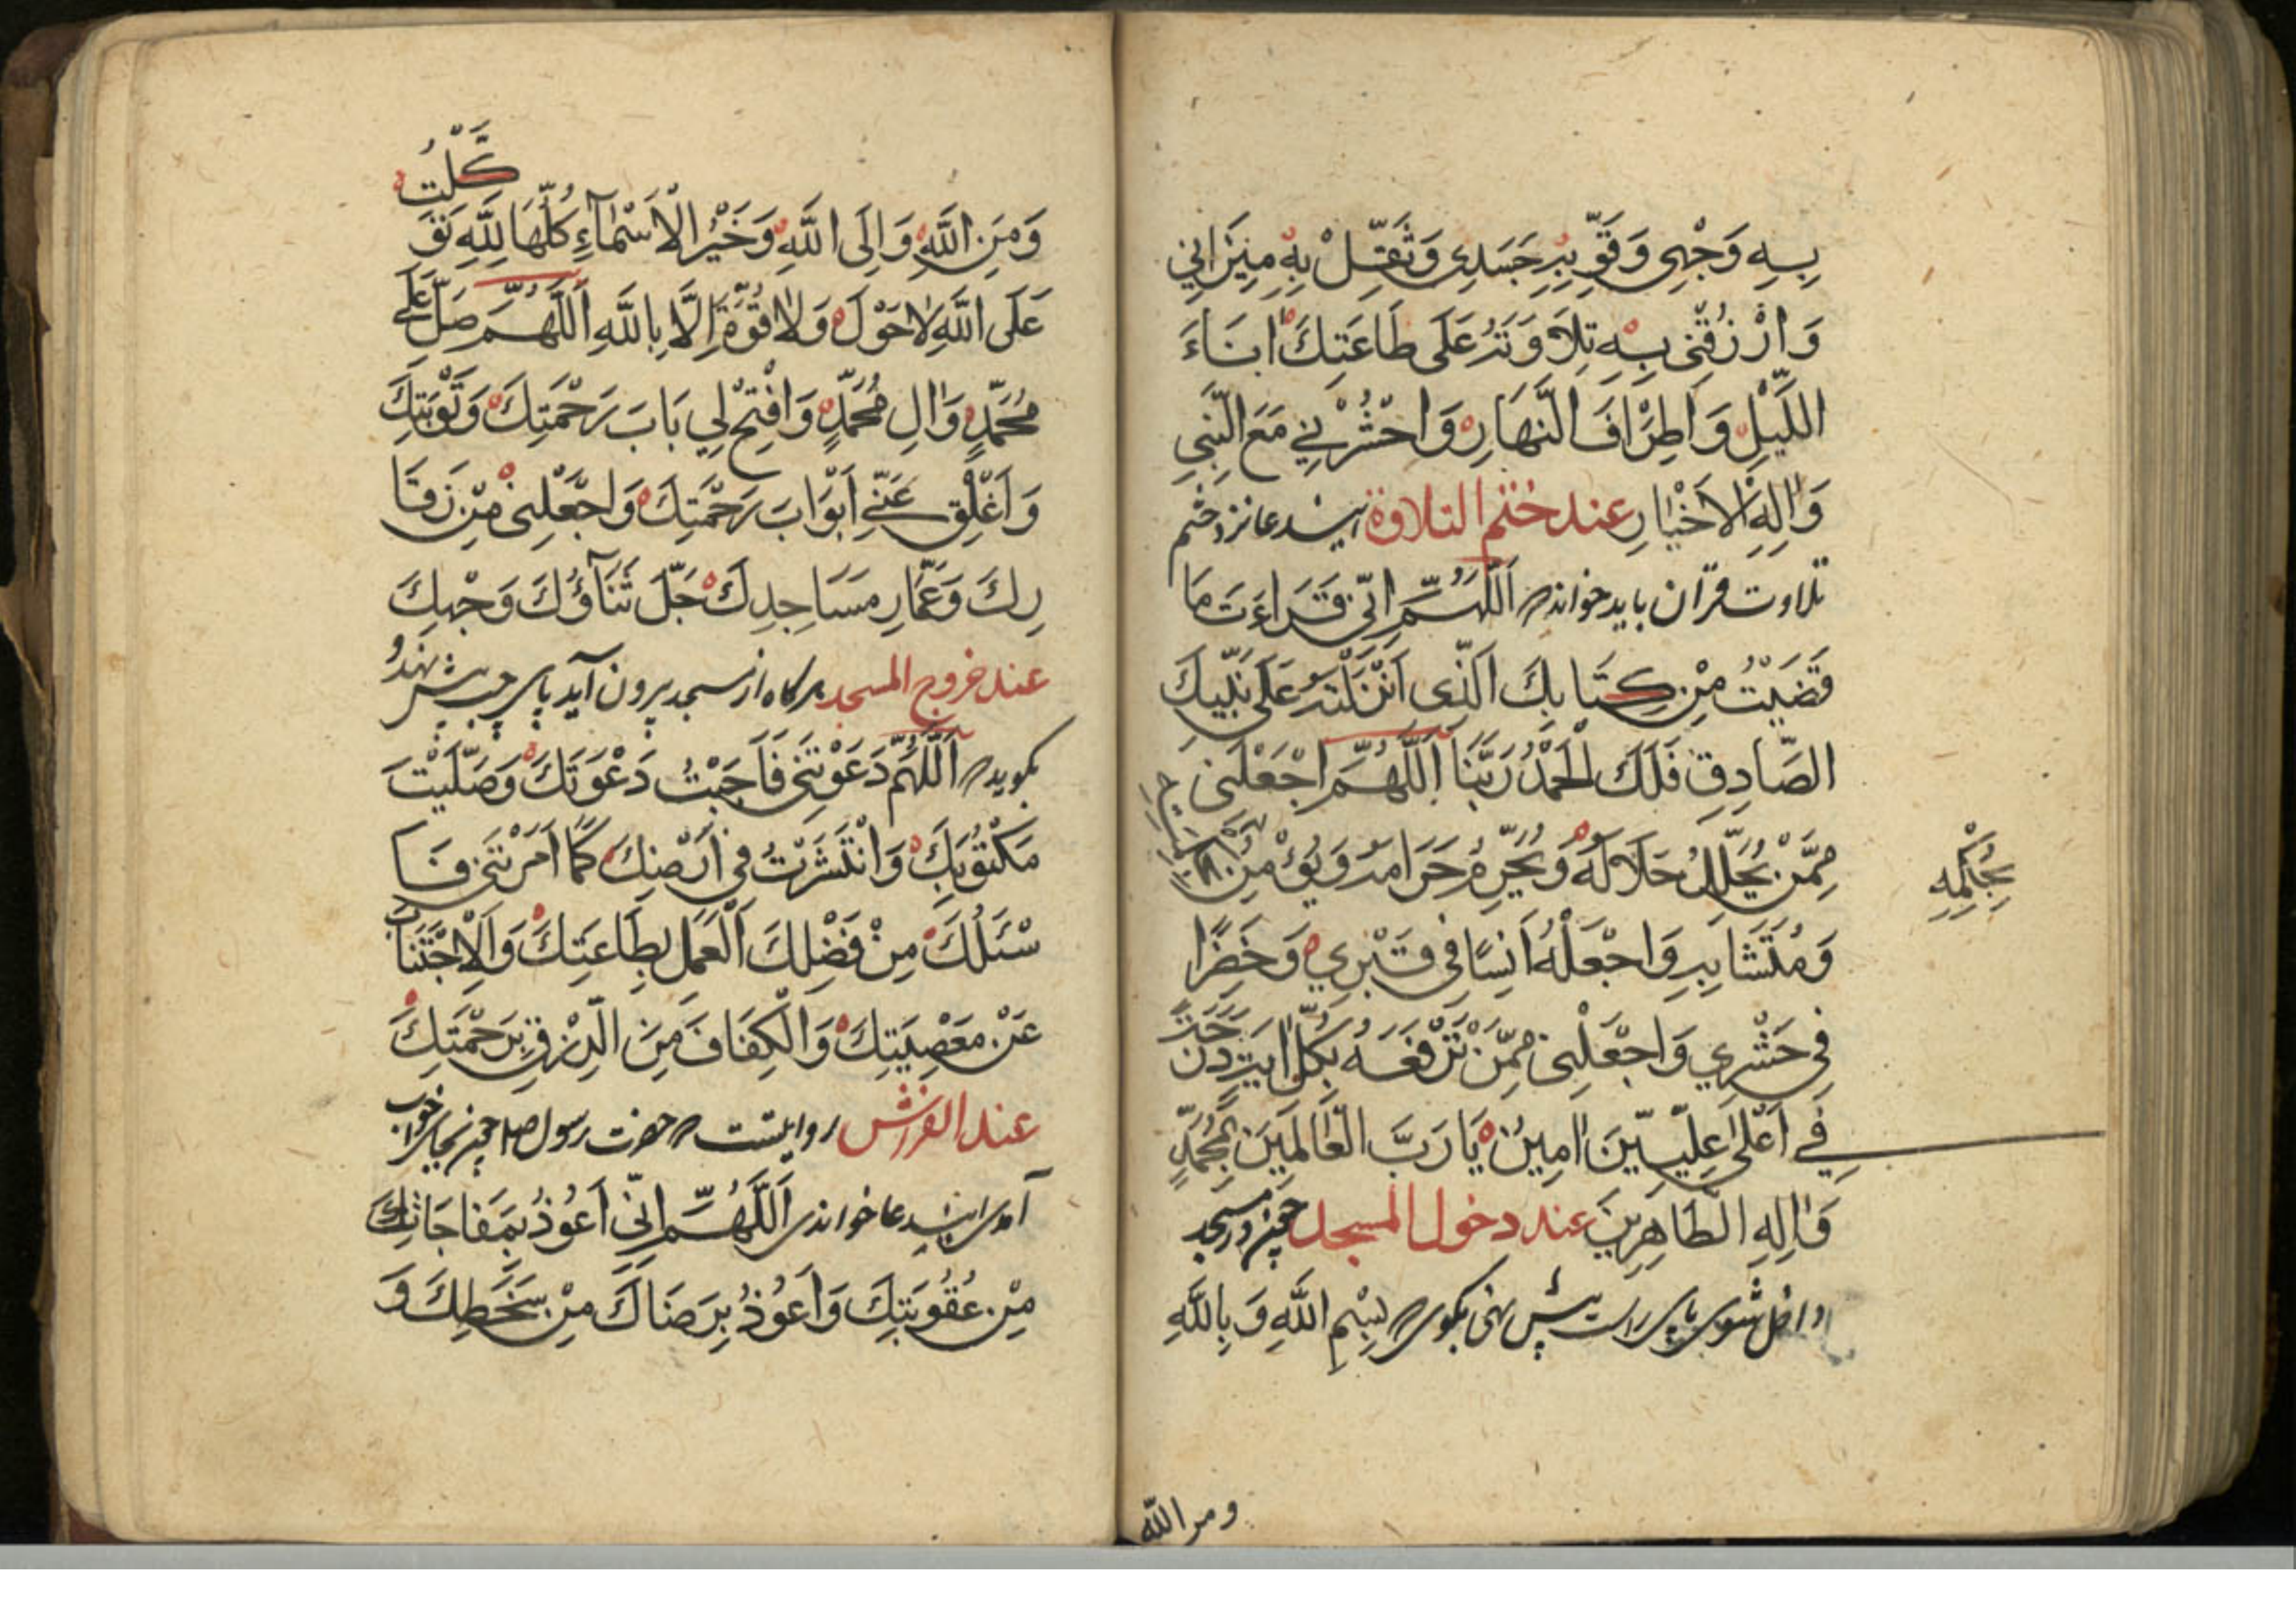 بِهِ وَجْهِی وَقَوِّ بِهِ جَسَدِی وَثَقِّلْ بِهِ مِیزَانِی
وَارْزُقْنِی بِهِ تِلَاوَتَهُ عَلَی طَاعَتِكَ انَاءَ
اللَّیْلِ وَاَطْرَافَ النَّهَارِ وَاحْشُرْنِی مَعَ النَّبِی
وَالِهِ الْاَخْیَارِ عند ختم التلاوة این دعا نزد ختم
تلاوت قرآن باید خواند اَللّٰهُمَّ اِنِّی قَرَاءَتَ مَا
قَضَیْتُ مِنْ كِتَابِكَ الَّذِی اَنْزَلْتَهُ عَلَی نَبِیِّكَ
الصَّادِقِ فَلَكَ الْحَمْدُ رَبَّنَا اَللّٰهُمَّ اجْعَلْنِی
مِمَّنْ یُحَلِّلُ حَلَالَهُ وَیُحَرِّمُ حَرَامَهُ وَیُؤْمِنُ
بِمُحْكَمِهِ
وَمُتَشَابِهِ وَاجْعَلْهُ اُنْسًا فِی قَبْرِی وَحَضَرًا
فِی حَشْرِی وَاجْعَلْنِی مِمَّنْ تَرْفَعَهُ بِكُلِّ ایَةٍ دَرَجَةً
فِی اَعْلٰی عِلِّیِّینَ امِینُ یَا رَبَّ الْعَالَمِینَ بِمُحَمَّدٍ
وَالِهِ الطَّاهِرِینَ عند دخول المسجد چون در مسجد
داخل شوی پای راست پیش نهی بکوی بِسْمِ اللّٰهِ وَبِاللّٰهِ
ومن الله
وَمِنَ اللّٰهِ وَاِلَی اللّٰهِ وَخَیْرُ الْاَسْمَاءِ كُلِّهَا لِلّٰهِ تَوَكَّلْتُ
عَلَی اللّٰهِ لَا حَوْلَ وَلَا قُوَّةَ اِلَّا بِاللّٰهِ اَللّٰهُمَّ صَلِّ عَلٰی
مُحَمَّدٍ وَالِ مُحَمَّدٍ وَافْتِحْ لِی بَابَ رَحْمَتِكَ وَتَوْبَتِكَ
وَاَغْلِقْ عَنِّی اَبْوَابَ رَحْمَتِكَ وَاجْعَلْنِی مِنْ زَوَّا
رِكَ وَعُمَّارِ مَسَاجِدِكَ جَلَّ ثَنَاؤُكَ وَجْهِكَ
عند خروج المسجد هرکاه از مسجد بیرون آید پای چپ پیش نهد و
بکوید اَللّٰهُمَّ دَعَوْتَنِی فَاَجَبْتُ دَعْوَتَكَ وَصَلَّیْتَ
مَكْتُوبَتِكَ وَانْتَشَرْتُ فِی اَرْضِكَ كَمَا اَمَرْتَنِی فَاَ
سْئَلُكَ مِنْ فَضْلِكَ الْعَمَلَ بِطَاعَتِكَ وَالْاِجْتِنَابَ
عَنْ مَعْصِیَتِكَ وَالْكَفَافَ مِنَ الرِّزْقِ بِرَحْمَتِكَ
عند الفرش روایتست حضرت رسول صلعم چون بجای خواب
آمدی این دعا خواندی اَللّٰهُمَّ اِنِّی اَعُوذُ بِمَفَاجَاتِكَ
مِنْ عُقُوبَتِكَ وَاَعُوذُ بِرَضَاكَ مِنْ سَخَطِكَ وَ